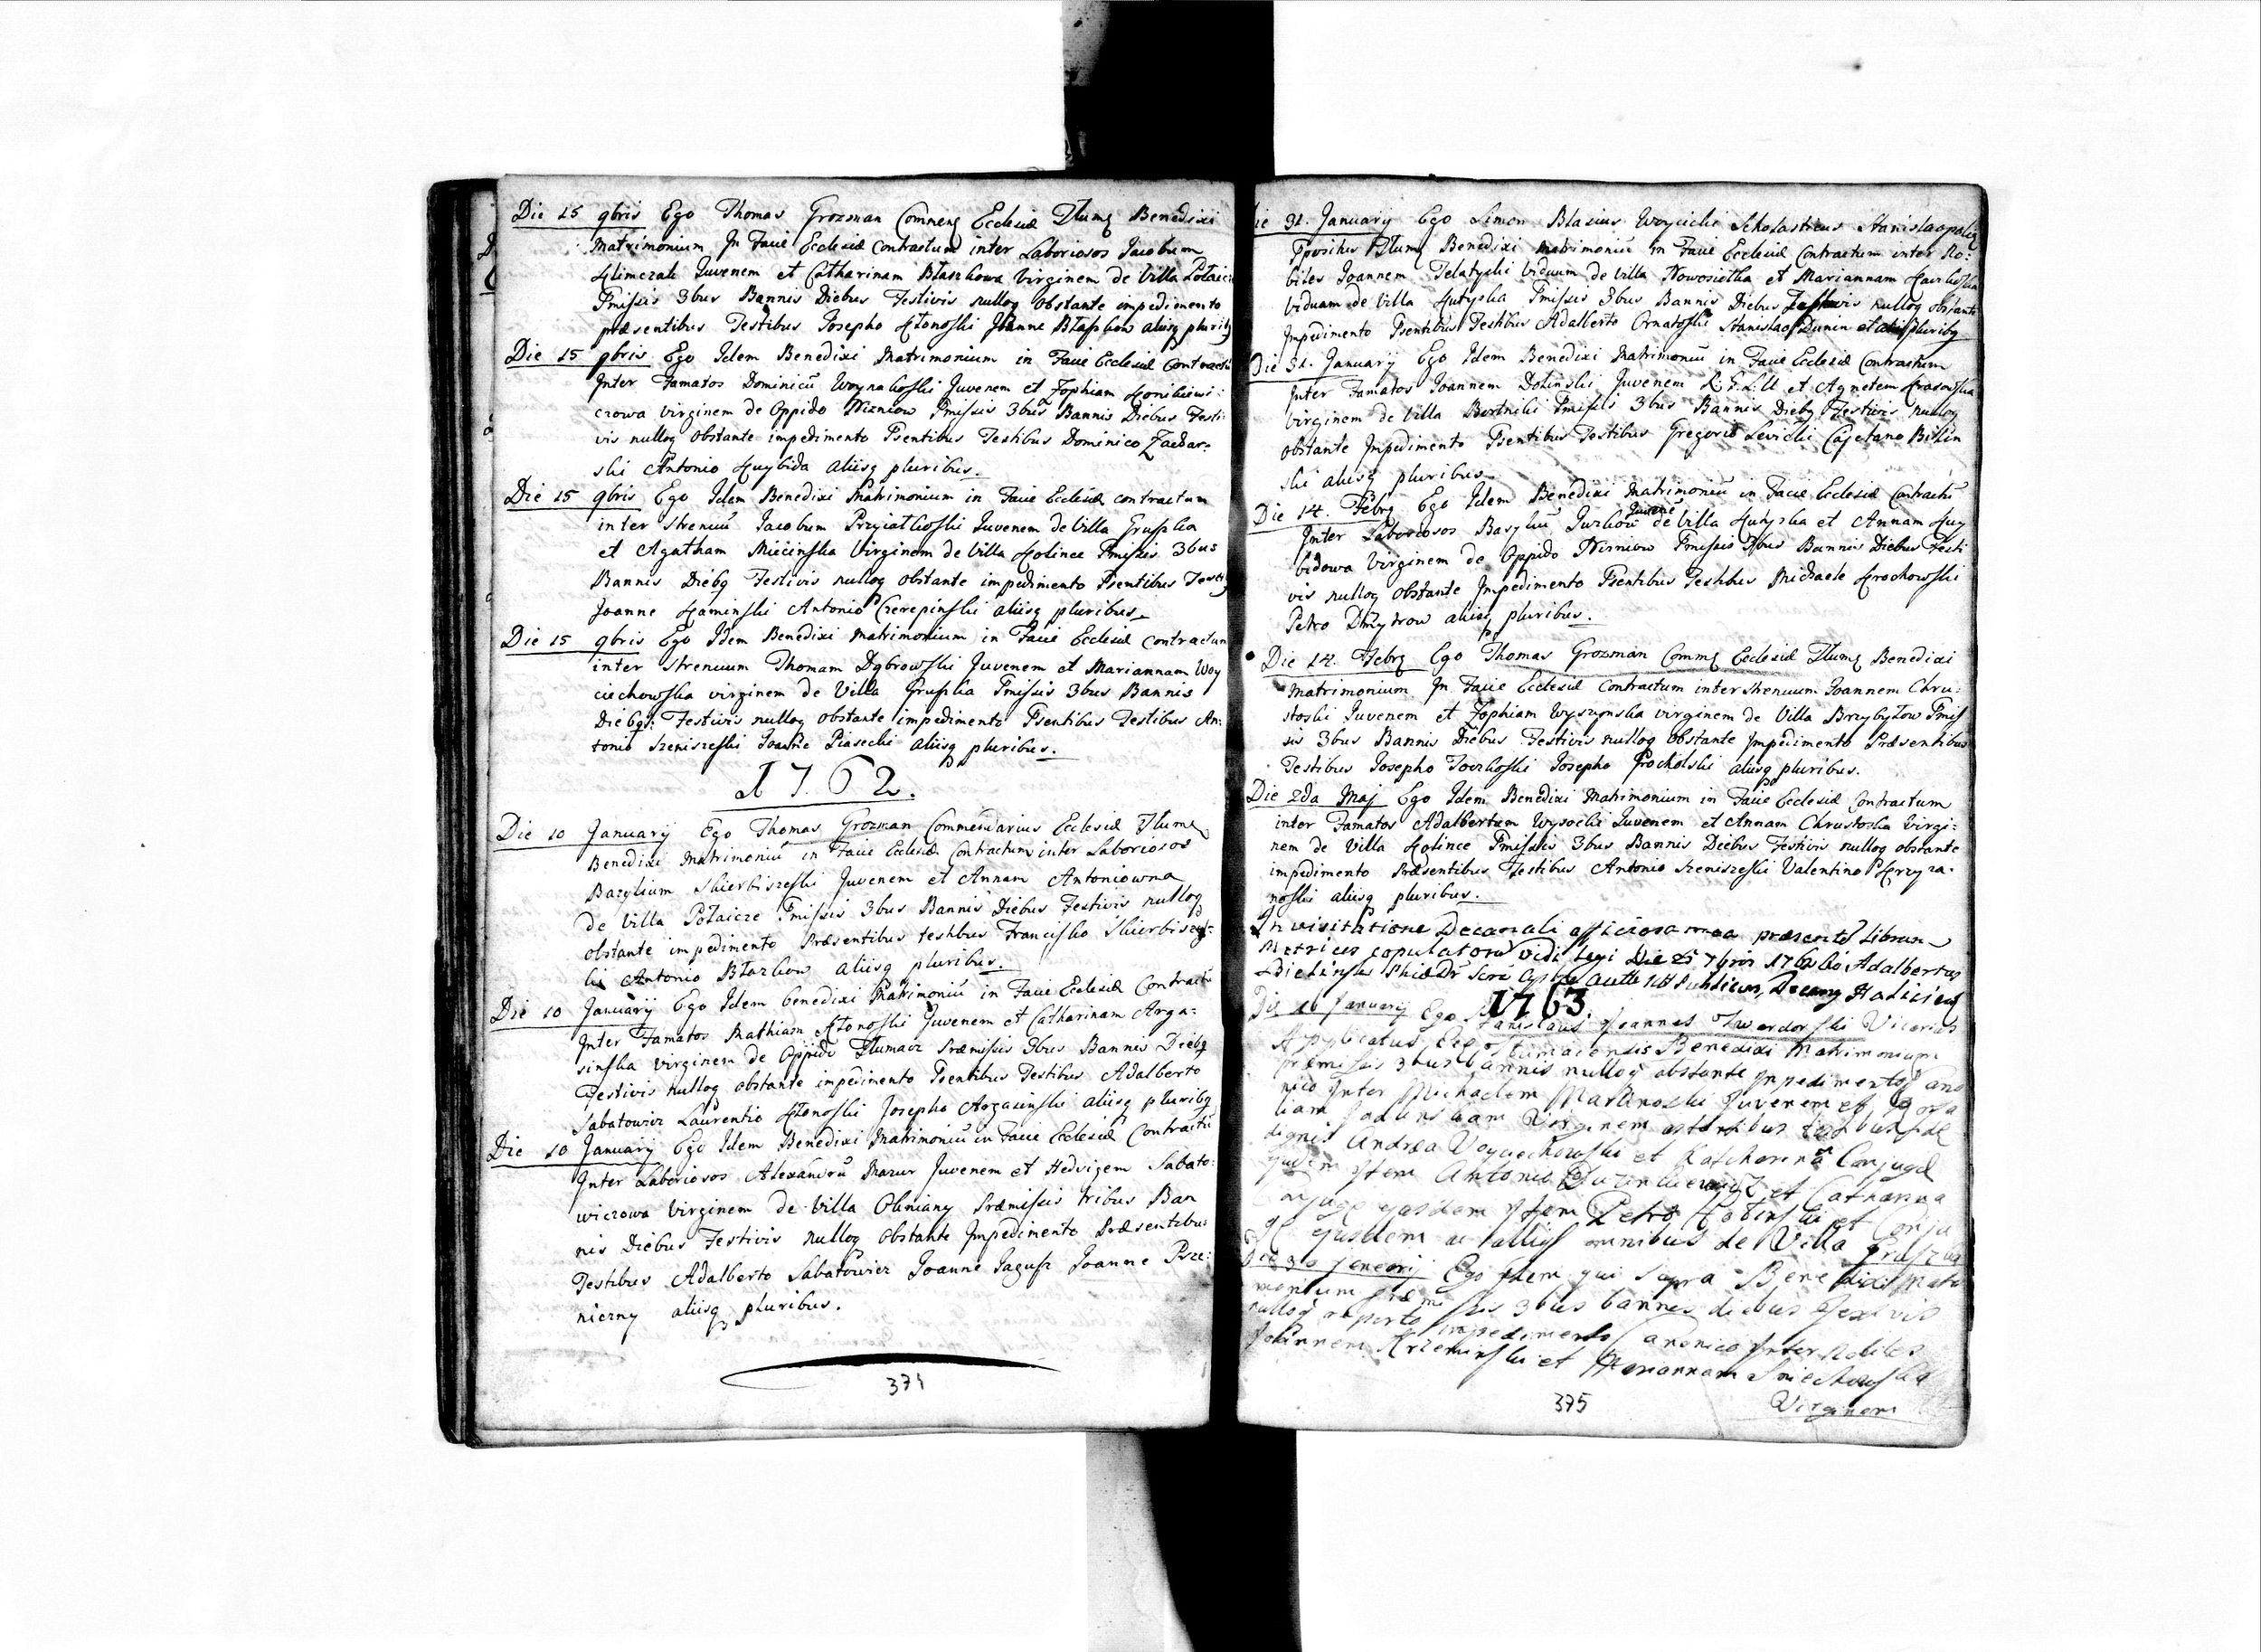 Die 15 9bris Ego Thomas Grozman Commend Ecclesiæ Tłumq Benedixi
Matrimonium In Facie Ecclesiæ Contractum inter Laboriosos Jacobum
Klimczak Juvenem et Catharinam Błaszkowa Virginem de Villa Potaicz
Pmissis 3bus Bannis Diebus Festivis nulloq obstante impedimento
præsentibus Testibus Josepho Kłonoski Joanne Błaszkow aliisq pluribq
Die 15 9bris Ego Idem Benedixi Matrimonium in Facie Ecclesiæ Contractu
Inter Famatos Dominicũ Woynakoski Juvenem et Zophiam
czowa virginem de Oppido Nizniow Pmissis 3bus Bannis Diebus Festi:
vis nulloq obstante impedimento Psentibus Testibus Dominico Zacdar:
ski Antonio Huybida aliisq pluribus.
Die 15 9bris Ego Idem Benedixi Matrimonium in Facie Ecclesiæ contractum
inter strenuũ Jacobum Przyiatkoski Juvenem de Villa Gruszka
et Agatham Miecinska Virginem de Villa Kolince Pmissis 3bus
Bannis Diebq Festivis nulloq obstante impedimento Psentibus Testbq
Joanne Kaminski Antonio Czerepinski aliisq pluribus
Die 15 9bris Ego Idem Benedixi Matrimonium in Facie Ecclesiæ Contractum
inter strenuum Thomam Dąbrowski Juvenem et Mariannam Woy
ciechowska virginem de Villa Gruszka Pmissis 3bus Bannis
Diebq: Festivis nulloq obstante impedimento Psentibus Testibus An:
tonio Szeniszeski Joanne Piasecki aliisq pluribus.
1762.
Die 10 January Ego Thomas Grozman Commendarius Ecclesiæ Tłumq
Benedixi Matrimoniũ in Facie Ecclesiæ Contractum inter Laboriosos
Bazylium Skierbiszeski Juvenem et Annam Antoniowna
de Villa Potaicze Pmissis 3bus Bannis Diebus Festivis nulloq
obstante impedimento Præsentibus testibus Francisko Skierbiszes:
ki Antonio Błazkow aliisq pluribus.
Die 10 January Ego Idem benedixi Matrimoniũ in Facie Ecclesiæ Contractũ
Inter Famatos Mathiam Kłonoski Juvenem et Catharinam Arga:
sinska virginem de Oppido Tłumacz Præmissis 3bus Bannis Diebq
Festivis nulloq obstante impedimento Psentibus Testibus Adalberto
Sabatowicz Laurentio Kłonoski Josepho Argasinski aliisq pluribq
Die 10 January Ego Idem Benedixi Matrimoniũ in Facie Ecclesiæ Contractũ
Inter Laboriosos Alexandrũ Mazur Juvenem et Hedvigem Sabato:
wiczowa Virginem de Villa Okniany Præmissis tribus Ban
nis Diebus Festivis nulloq obstante Impedimento Præsentibus
Testibus Adalberto Sabatowicz Joanne Jagusz Joanne Psze:
niczny aliisq pluribus.
374
ie 31. January Ego Simon Blasius Woycicki Scholasticus Stanislaopoliẽ
Ppositus Tłumq Benedixi Matrimoniũ in Facie Ecclesiæ Contractum inter No:
biles Joannem Telatycki Viduum de Villa Nowosietka et Mariannam
Viduam de Villa Hutyska Pmissis 3bus Bannis Diebus Festivis nulloq obstante
Impedimento Psentibus Testibus Adalberto Ornatoski Stanislao Dunin et aliis pluribq
Die 31. January Ego Idem Benedixi Matrimoniũ in Facie Ecclesiæ Contractum
Inter Famatos Joannem Dolinski Juvenem et Agnetem Krasowska
virginem de Villa Bortniki Pmissis 3bus Bannis Diebq Festivis nulloq
obstante Impedimento Psentibus Testibus Gregorio Levicki Cajetano Bilin
ski aliisq pluribus
Die 14. Febrq Ego Idem Benedixi Matrimoniũ in Facie Ecclesiæ Contractũ
Inter Laboriosos Basyliũ Jurkow Juvenẽ de Villa Hutyska et Annam Huy
bidowa Virginem de Oppido Nizniow Pmissis 3bus Bannis Diebus Festi
vis nulloq obstante Impedimento Psentibus Testibus Michaele Krochowski
Petro Dmytrow aliisq pluribus.
Die 14. Febrq Ego Thomas Grozman Commq Ecclesiæ Tłumq Benedixi
Matrimonium In Facie Ecclesiæ Contractum inter strenuum Joannem Chru:
stoski Juvenem et Zophiam Wyszynska virginem de Villa Brzybyłow Pmis
sis 3bus Bannis Diebus Festivis nulloq obstante Impedimento Præsentibus
Testibus Josepho Toczkoski Josepho Grocholski aliisq pluribus.
Die 2da Maj Ego Idem Benedixi Matrimonium in Facie Ecclesiæ Contractum
inter Famatos Adalbertum Wysocki Juvenem et Annam Chrustoska Virgi:
nem de Villa Kolince Pmissis 3bus Bannis Diebus Festivis nulloq obstante
impedimento Præsentibus Testibus Antonio Szeniszeski Valentino Skrzyza:
noski aliisq pluribus.
In visitatione Decanali officiosa mea præsentẽ Librum
Metrices copulatorũ vidi legi Die 25 7bris 1762 Adalbertus
Haliciens
1763.
Die 16 January Ego Stanislaus Joannes Twerdowski Vicarius
Applicatus Eccl Tłumacensis Benedixi Matrimonium
præmissis 3bus bannis nulloq obstante Inpedimento Cano
nico Inter Michaelem Markowski Juvenem et Rosa
liam Virginem astantibus testibus fide
dignis Andrea Woyciechowski et Katherina Conjuge
ejusdem Item Antonio et Catharina
Conjuge ejusdem Item Petro Kobinski et Conju
ge ejusdem ac alliis omnibus de Villa Gruszka
Die 30 Jenearij Ego Idem qui supra Benedixi Matri
monium præmissis 3bus bannis diebus Festivis
nulloq reperto impedimento Canonico Inter Nobiles
Johannem Krzeminski et Mariannam Smiechowska
Virginem
375